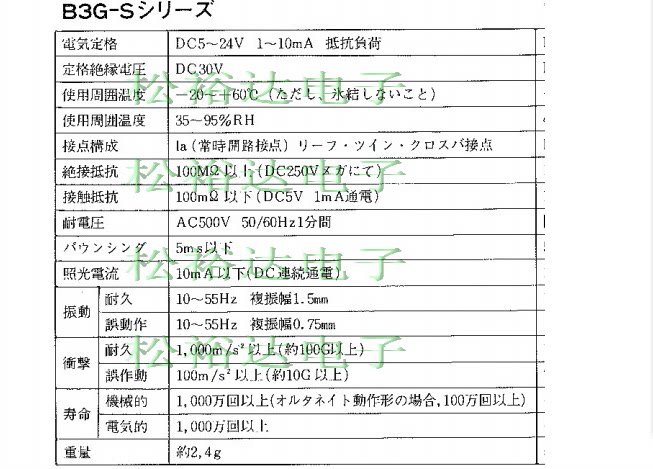 B3G-Sシリーズ
電気定格 DC5～24V 1～10mA 抵抗負荷
定格絶縁電圧 DC30V
使用周囲温度 -20～+60℃（ただし、氷結しないこと）
使用周囲湿度 35～95%RH
接点構成 1a（常時開路接点）リーフ・ツイン・クロスバ接点
絶接抵抗 100MΩ以上（DC250Vメガにて）
接触抵抗 100mΩ以下（DC5V 1mA通電）
耐電圧 AC500V 50/60Hz1分間
バウンシング 5ms以下
照光電流 10mA以下（DC連続通電）
振動 耐久 10～55Hz 複振幅1.5mm
誤動作 10～55Hz 複振幅0.75mm
衝撃 耐久 1,000m/s²以上（約100G以上）
誤作動 100m/s²以上（約10G以上）
寿命 機械的 1,000万回以上（オルタネイト動作形の場合，100万回以上）
電気的 1,000万回以上
重量 約2,4g
松裕达电子
松裕达电子
松裕达电子
松裕达电子